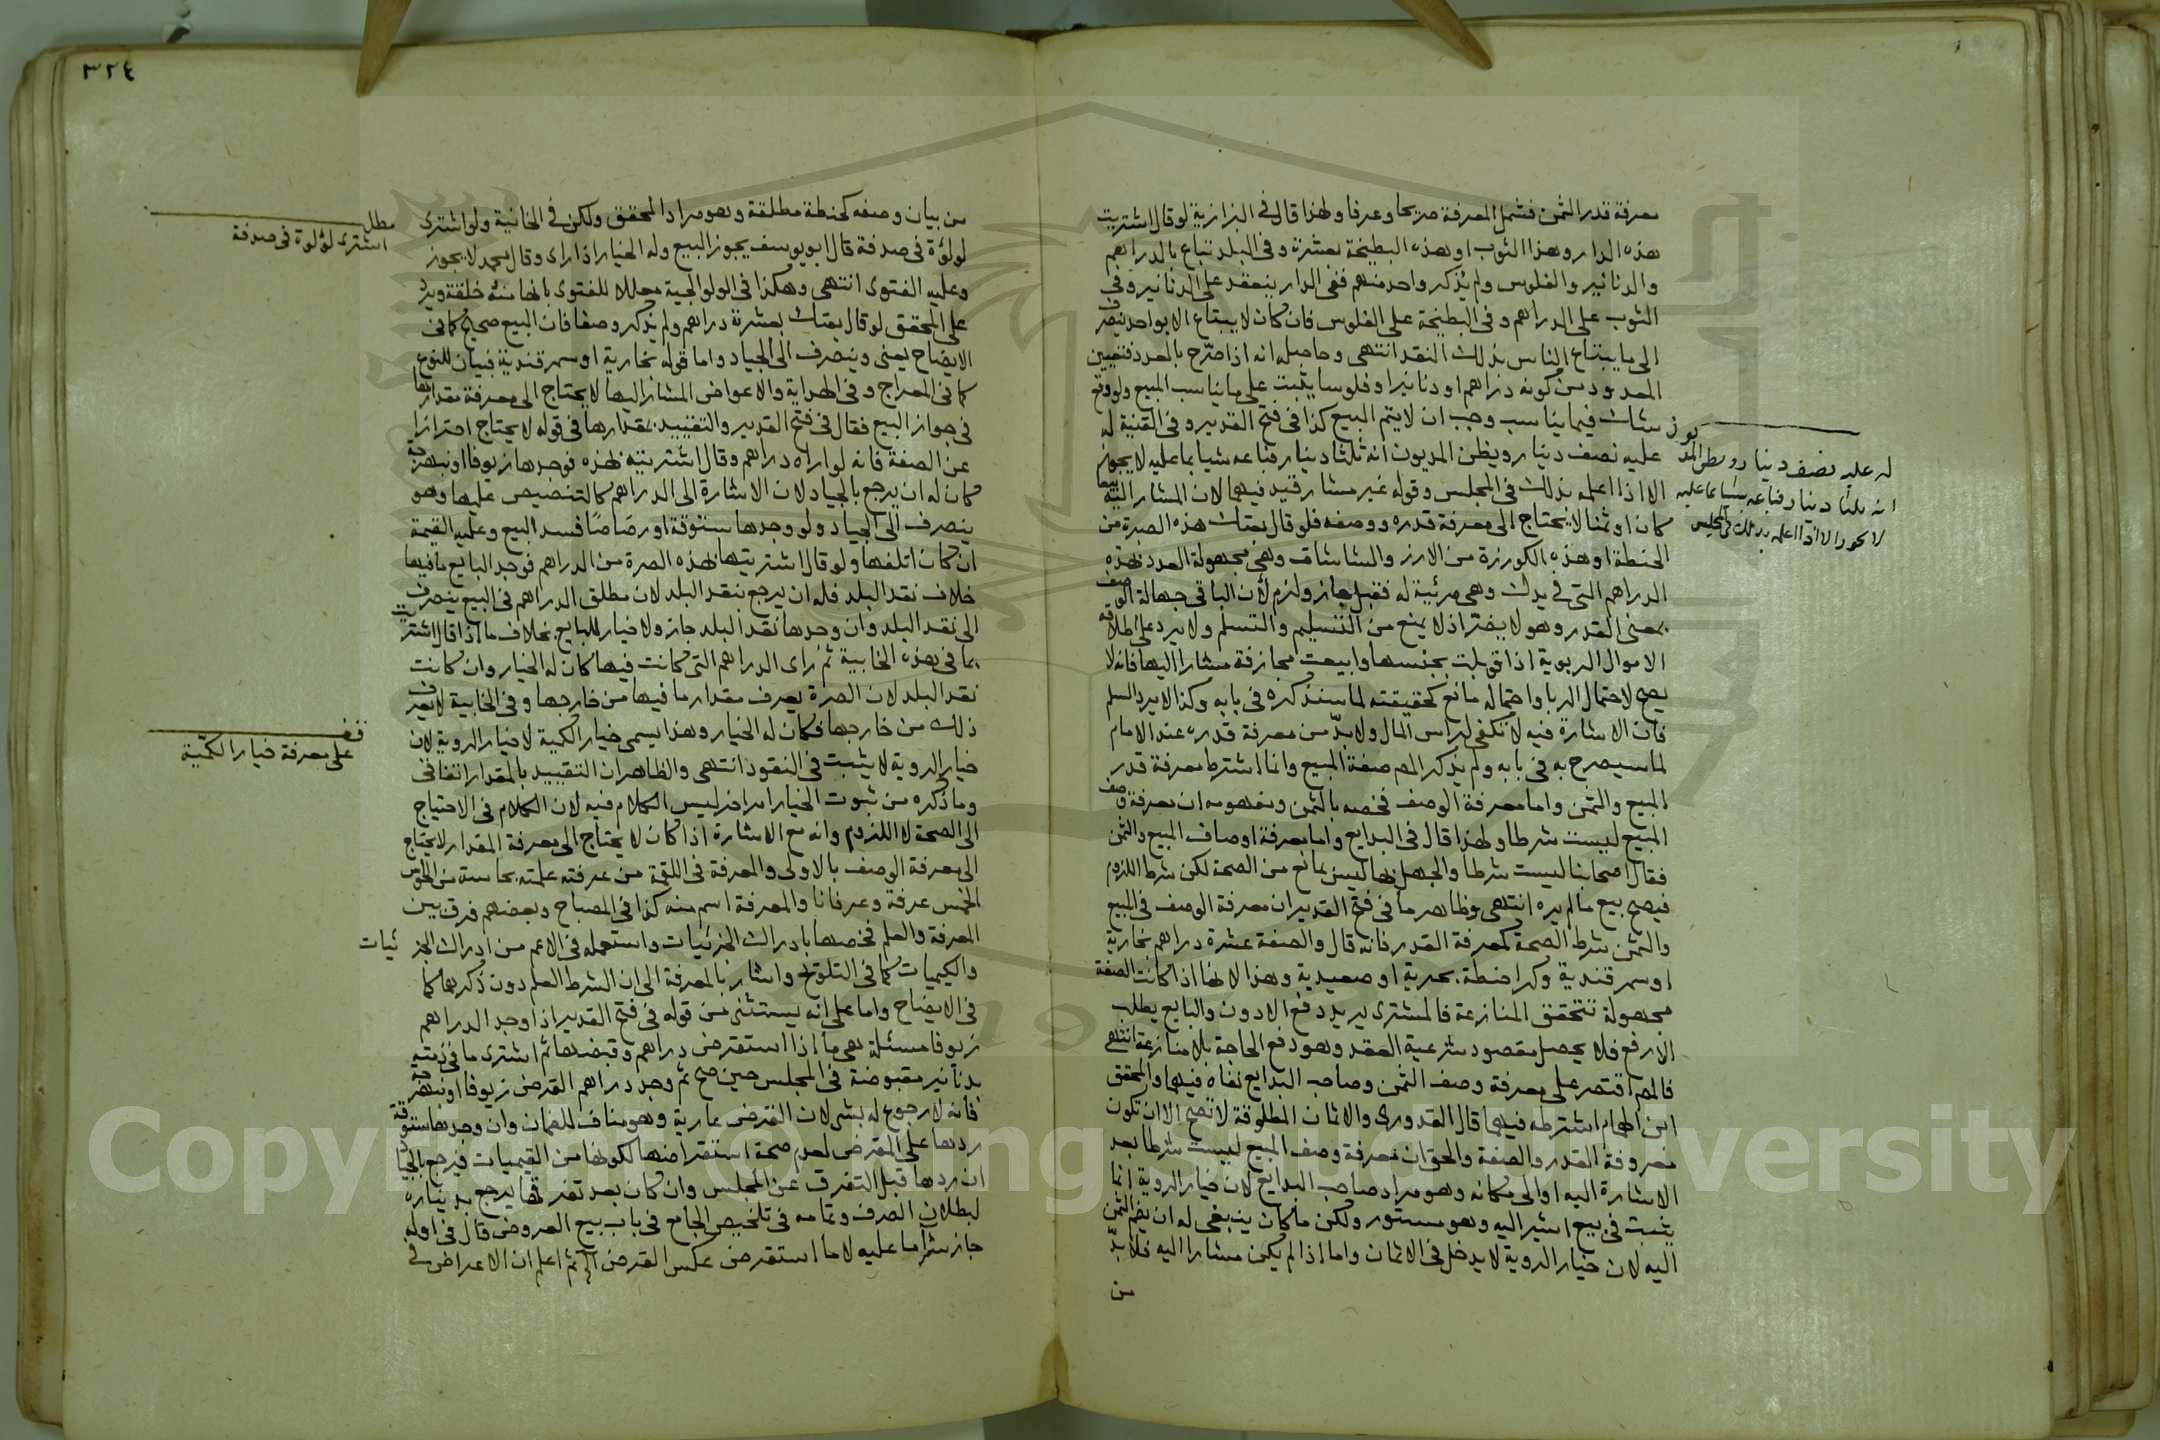 معرفة قدر الثمن فشمل المعرفة صريحا وعرفا ولهذا قال في البزازية لو قال اشتريت
هذه الدار وهذا الثوب او هذه البطيخة بعشرة وفي البلد تباع بالدراهم
والدنانير والفلوس ولم يذكر واحد منهم ففي الدار ينعقد على الدنانير وفي
الثوب على الدراهم وفي البطيخة على الفلوس فان كان لا يبتاع الا بواحد ينصرف
الى ما يبتاع الناس بذلك النقد انتهى وحاصله انه اذا صرح بالعدد فتعيين
المعدود من كونه دراهم او دنانير او فلوسا يثبت على ما يناسب المبيع ولو وقع
شك فيما يناسب وجب ان لا يتم البيع كذا في فتح القدير وفي القنية له
عليه نصف دينار ويظن المديون انه ثلثا دينار فباعه شيا بما عليه لا يجوز
الا اذا اعلمه بذلك في المجلس وقوله غير مشار قيد فيهما لان المشار اليه مبيعا
كان او ثمنا لا يحتاج الى معرفة قدره ووصفه فلو قال بعتك هذه الصبرة من
الحنطة او هذه الكورزة من الارز والشاشات وهي مجهولة العدد بهذه
الدراهم التي في يدك وهي مرئية له فقبل جاز ولزم لان الباقي جهالة الوصف
يعني القدر وهو لا يضر اذ لا يمنع من التسليم والتسلم ولا يرد على اطلاقه
الاموال الربوية اذا قوبلت بجنسها وابيعت مجازفة مشارا اليها فانه لا
يصح لاحتمال الربا واحتماله مانع كحقيقته لما سنذكره في بابه وكذا لا يرد السلم
فان الاشارة فيه لا تكفي لراس المال ولا بد من معرفة قدره عند الامام
لما سيصرح به في بابه ولم يذكر المص صفة المبيع وانما اشترط معرفة قدر
المبيع والثمن واما معرفة الوصف فخصه بالثمن ومفهومه ان معرفة وصف
المبيع ليست شرطا ولهذا قال في البدايع واما معرفة اوصاف المبيع والثمن
فقال اصحابنا ليست شرطا والجهل بها ليس بمانع من الصحة لكن شرط اللزوم
فيصح بيع ما لم يره انتهى وظاهر ما في فتح القدير ان معرفة الوصف في المبيع
والثمن شرط الصحة كمعرفة القدر فانه قال والصفة عشرة دراهم بخارية
او سمرقندية وكر حنطة بحرية او صعيدية وهذا لانها اذا كانت الصفة
مجهولة تتحقق المنازعة فالمشتري يريد دفع الادون والبايع يطلب
الارفع فلا يحصل مقصود شرعية العقد وهو دفع الحاجة بلا منازعة انتهى
فالمص اقتصر على معرفة وصف الثمن وصاحب البدايع نفاه فيهما والمحقق
ابن الهمام اشترطه فيهما قال القدوري والاثمان المطلوقة لا تصح الا ان تكون
معروفة القدر والصفة والحق ان معرفة وصف المبيع ليست شرطا بعد
الاشارة اليه او الى مكانه وهو مراد صاحب البدايع لان خيار الروية انما
يثبت في بيع اشير اليه وهو مستور ولكن ما كان ينبغي له ان يضم الثمن
اليه لان خيار الروية لا يدخل في الاثمان واما اذا لم يكن مشارا اليه فلا بد
من
له عليه نصف دينار ويظن المد يون
انه ثلثا دينار فباعه شيا بما عليه
لا يجوز الا اذا اعلمه بذلك في المجلس
٣٢٤
من بيان وصفه كحنطة مطلقة وهو مراد المحقق ولكن في الخانية ولو اشترى
لولؤة في صدفة قال ابو يوسف يجوز البيع وله الخيار اذا راى وقال محمد لا يجوز
وعليه الفتوى انتهى وهكذا في الولوالجية معللا للفتوى بانها منه خلقة ويرد
على المحقق لو قال بعتك بعشرة دراهم ولم يذكر وصفا فان البيع صحيح كما في
الايضاح يعني وينصرف الى الجياد واما قوله بخارية او سمرقندية فبيان للنوع
كما في المعراج وفي الهداية والاعواض المشار اليها لا يحتاج الى معرفة مقدارها
في جواز البيع فقال في فتح القدير والتقييد بمقدارها في قوله لا يحتاج احترازا
عن الصفة فانه لو اراه دراهم وقال اشتريته بهذه فوجدها زيوفا او نبهرجة
كان له ان يرجع بالجياد لان الاشارة الى الدراهم كالتنصيص عليها وهو
ينصرف الى الجياد ولو وجدها ستوقة او رصاصا فسد البيع وعليه القيمة
ان كان اتلفها ولو قال اشتريتها بهذه الصرة من الدراهم فوجد البايع ما فيها
خلاف نقد البلد فله ان يرجع بنقد البلد لان مطلق الدراهم في البيع ينصرف
الى نقد البلد وان وجدها نقد البلد جاز ولا خيار للبايع بخلاف ما اذا قال اشتريت
بما في هذه الخابية ثم راى الدراهم التي كانت فيها كان له الخيار وان كانت
نقد البلد لان الصرة يعرف مقدار ما فيها من خارجها وفي الخابية لا يعرف
ذلك من خارجها فكان له الخيار وهذا يسمى خيار الكمية لا خيار الروية لان
خيار الروية لا يثبت في النقود انتهى والظاهر ان التقييد بالمقدار اتفاقي
وما ذكره من ثبوت الخيار امر اخر ليس الكلام فيه لان الكلام في الاحتياج
الى الصحة لا اللزوم وانه مع الاشارة اذا كان لا يحتاج الى معرفة المقدار لا يحتاج
الى معرفة الوصف بالاولى والمعرفة في اللغة من عرفته علمته بحاسة من الحواس
الخمس عرفة وعرفانا والمعرفة اسم منه كذا في المصباح وبعضهم فرق بين
المعرفة والعلم فخصها بادراك الجزئيات واستعمله في الاعم من ادراك الجز ئيات
والكليات كما في التلويح واشار بالمعرفة الى ان الشرط العلم دون ذكرهما كما
في الايضاح واما على انه يستثنى من قوله في فتح القدير اذا وجد الدراهم
زيوفا مسئلة هي ما اذا استقرض دراهم وقبضها ثم اشترى ما في ذمته
بدنانير مقبوضة في المجلس حين صح ثم وجد دراهم القرض زيوفا او نبهرجة
فانه لا رجوع له بشي لان القرض عارية وهو مناف للضمان وان وجدها ستوقة
ردها على المقرض لعدم صحة استقراضها لكونها من القيميات فيرجع بالجياد
ان ردها قبل التفرق عن المجلس وان كان بعد تفرقهما يرجع بديناره
لبطلان الصرف وتمامه في تلخيص الجامع في باب بيع العروض قال في اوله
جاز شرا ما عليه لا ما استقرض عكس القرض الخ ثم اعلم ان الاعراض في
مطلب
اشترى لؤلؤة في صدفة
قف
على معرفة خيار الكمية
Copyright © King Saud University